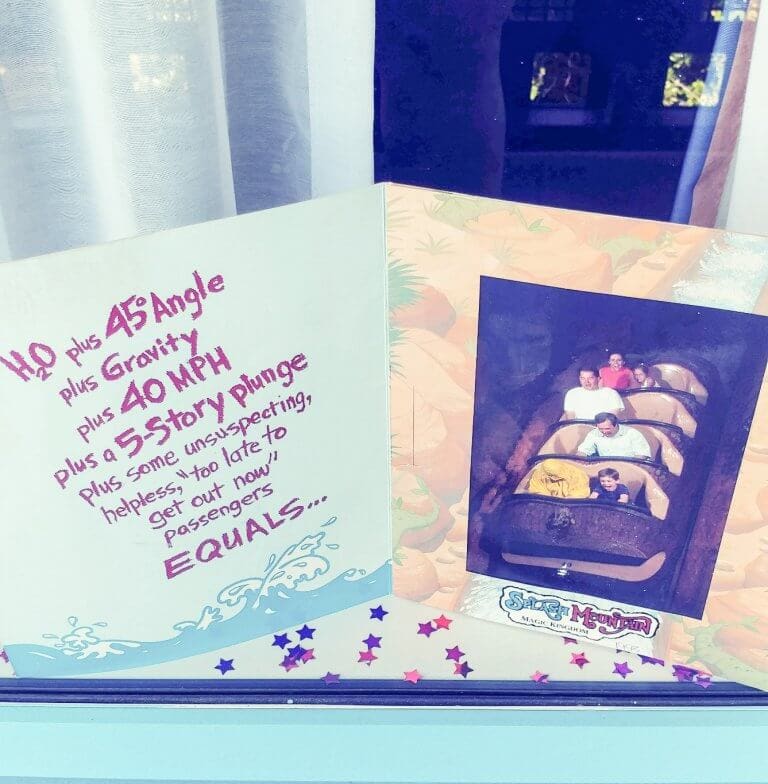 H2O plus 45° Angle
plus Gravity
plus 40 MPH
plus a 5-Story plunge
plus some unsuspecting,
helpless, "too late to
get out now"
passengers
EQUALS...
SPLASH MOUNTAIN
MAGIC KINGDOM